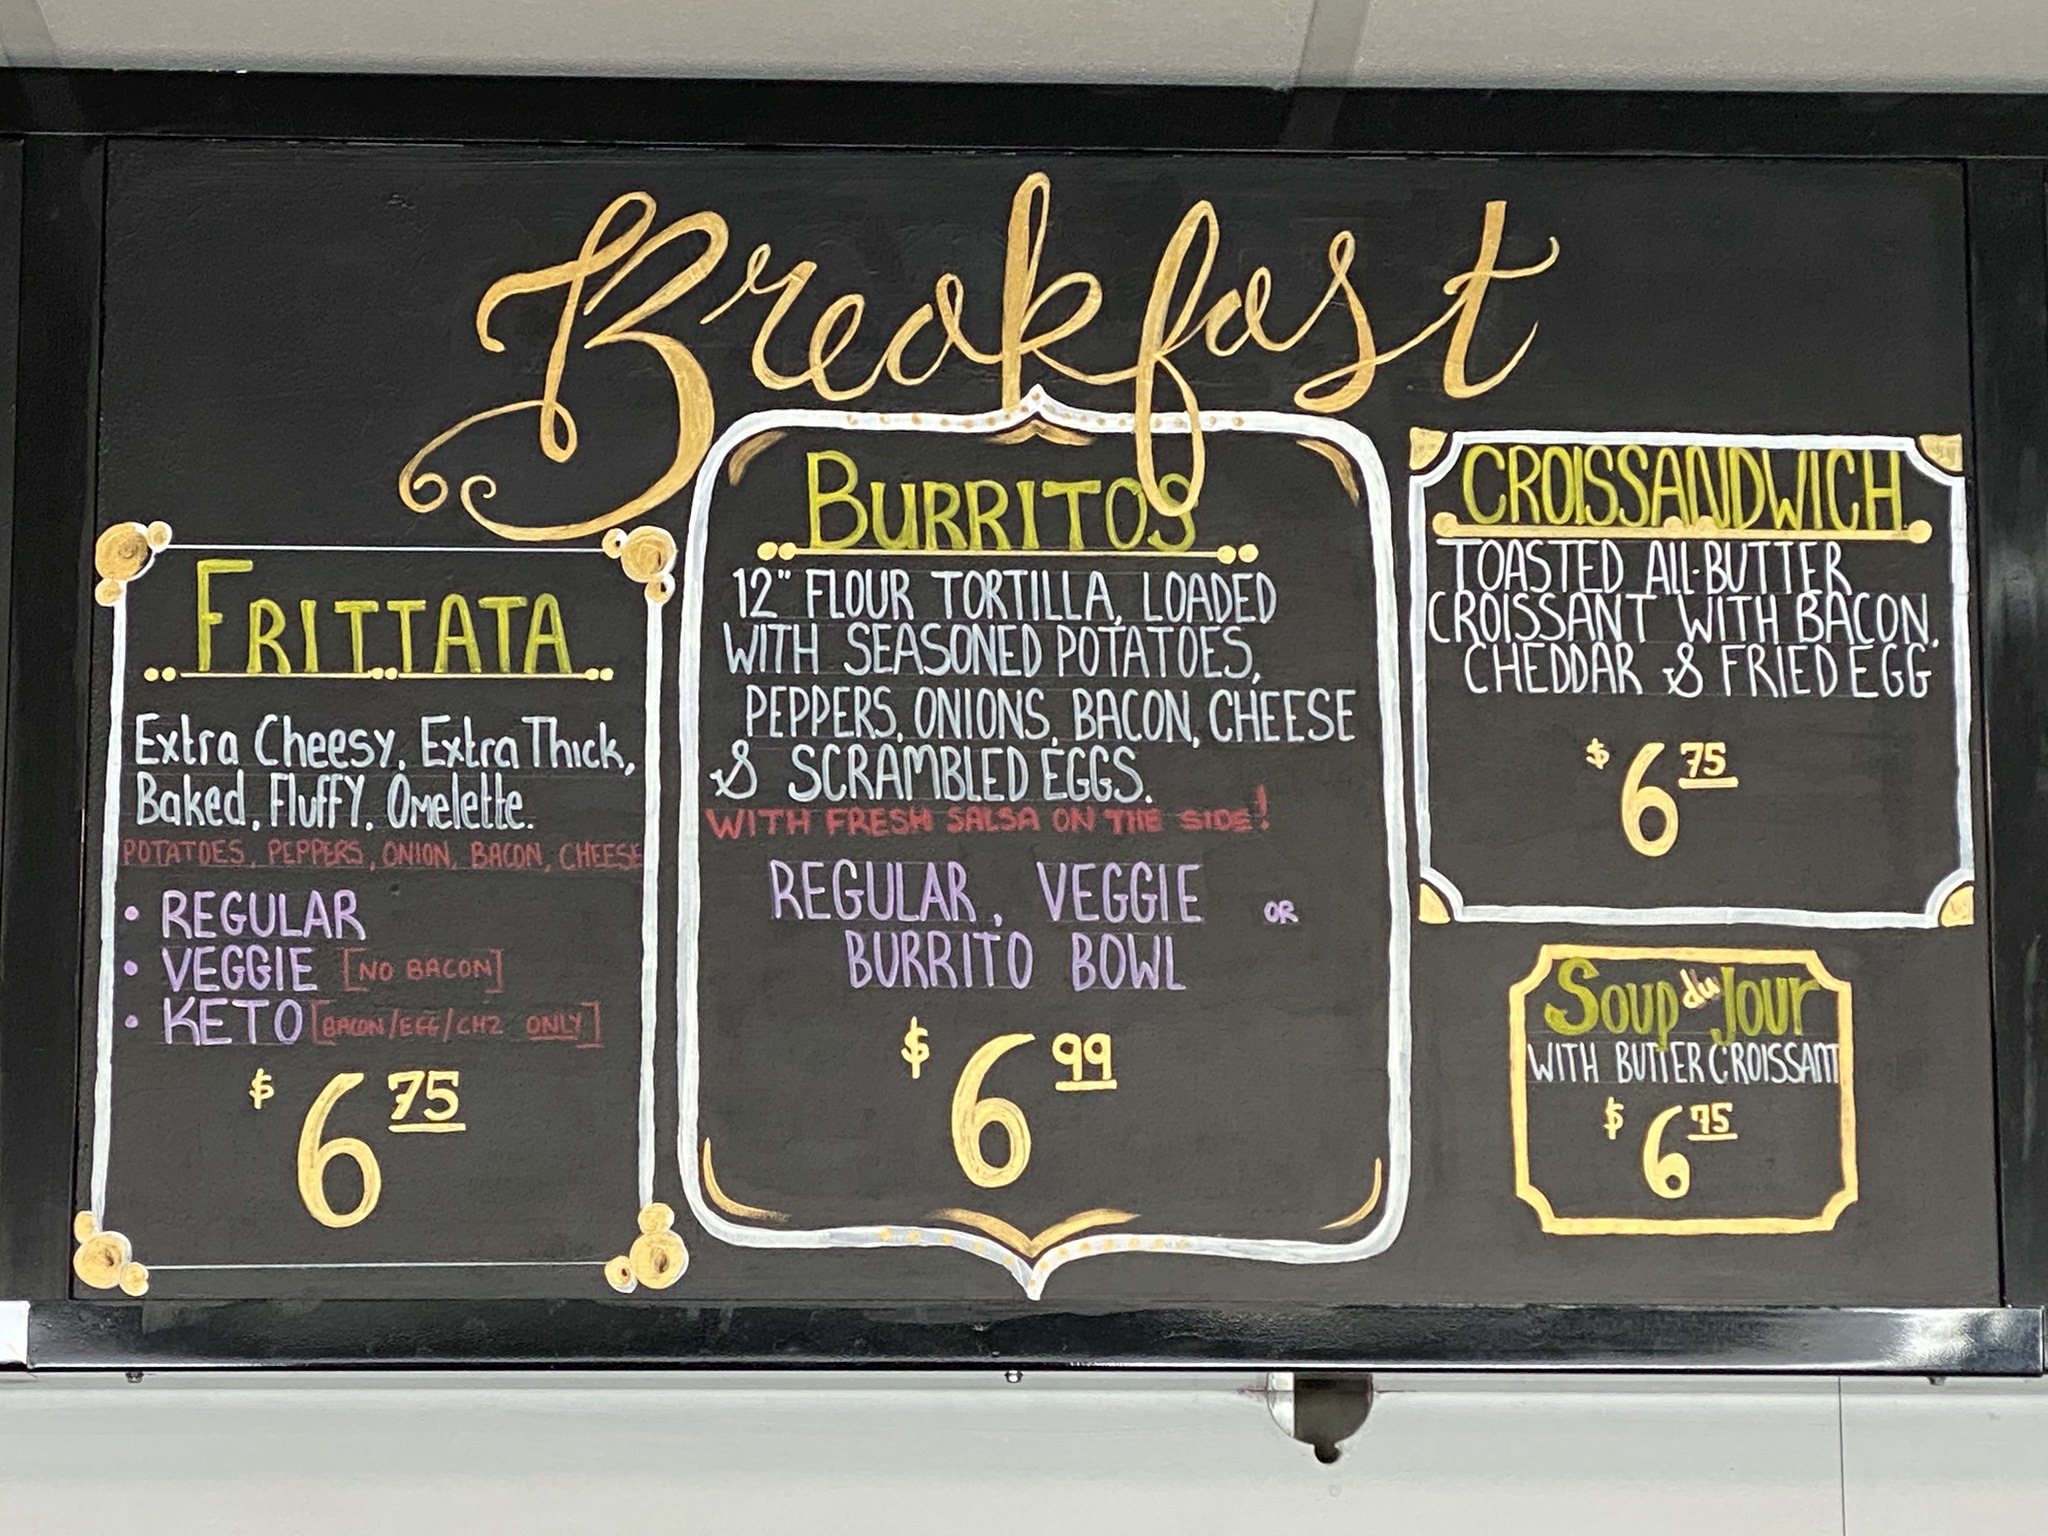 Breakfast
FRITTATA
Extra Cheesy, Extra Thick,
Baked, Fluffy, Omelette.
POTATOES, PEPPERS, ONION, BACON, CHEESE
• REGULAR
• VEGGIE [NO BACON]
• KETO [BACON/EGG/CHZ ONLY]
$6 75
BURRITOS
12" FLOUR TORTILLA, LOADED
WITH SEASONED POTATOES,
PEPPERS, ONIONS, BACON, CHEESE
& SCRAMBLED EGGS.
WITH FRESH SALSA ON THE SIDE!
REGULAR, VEGGIE OR
BURRITO BOWL
$6 99
CROISSANDWICH
TOASTED ALL-BUTTER
CROISSANT WITH BACON,
CHEDDAR & FRIED EGG
$6 75
Soup du Jour
WITH BUTTER CROISSANT
$6 75